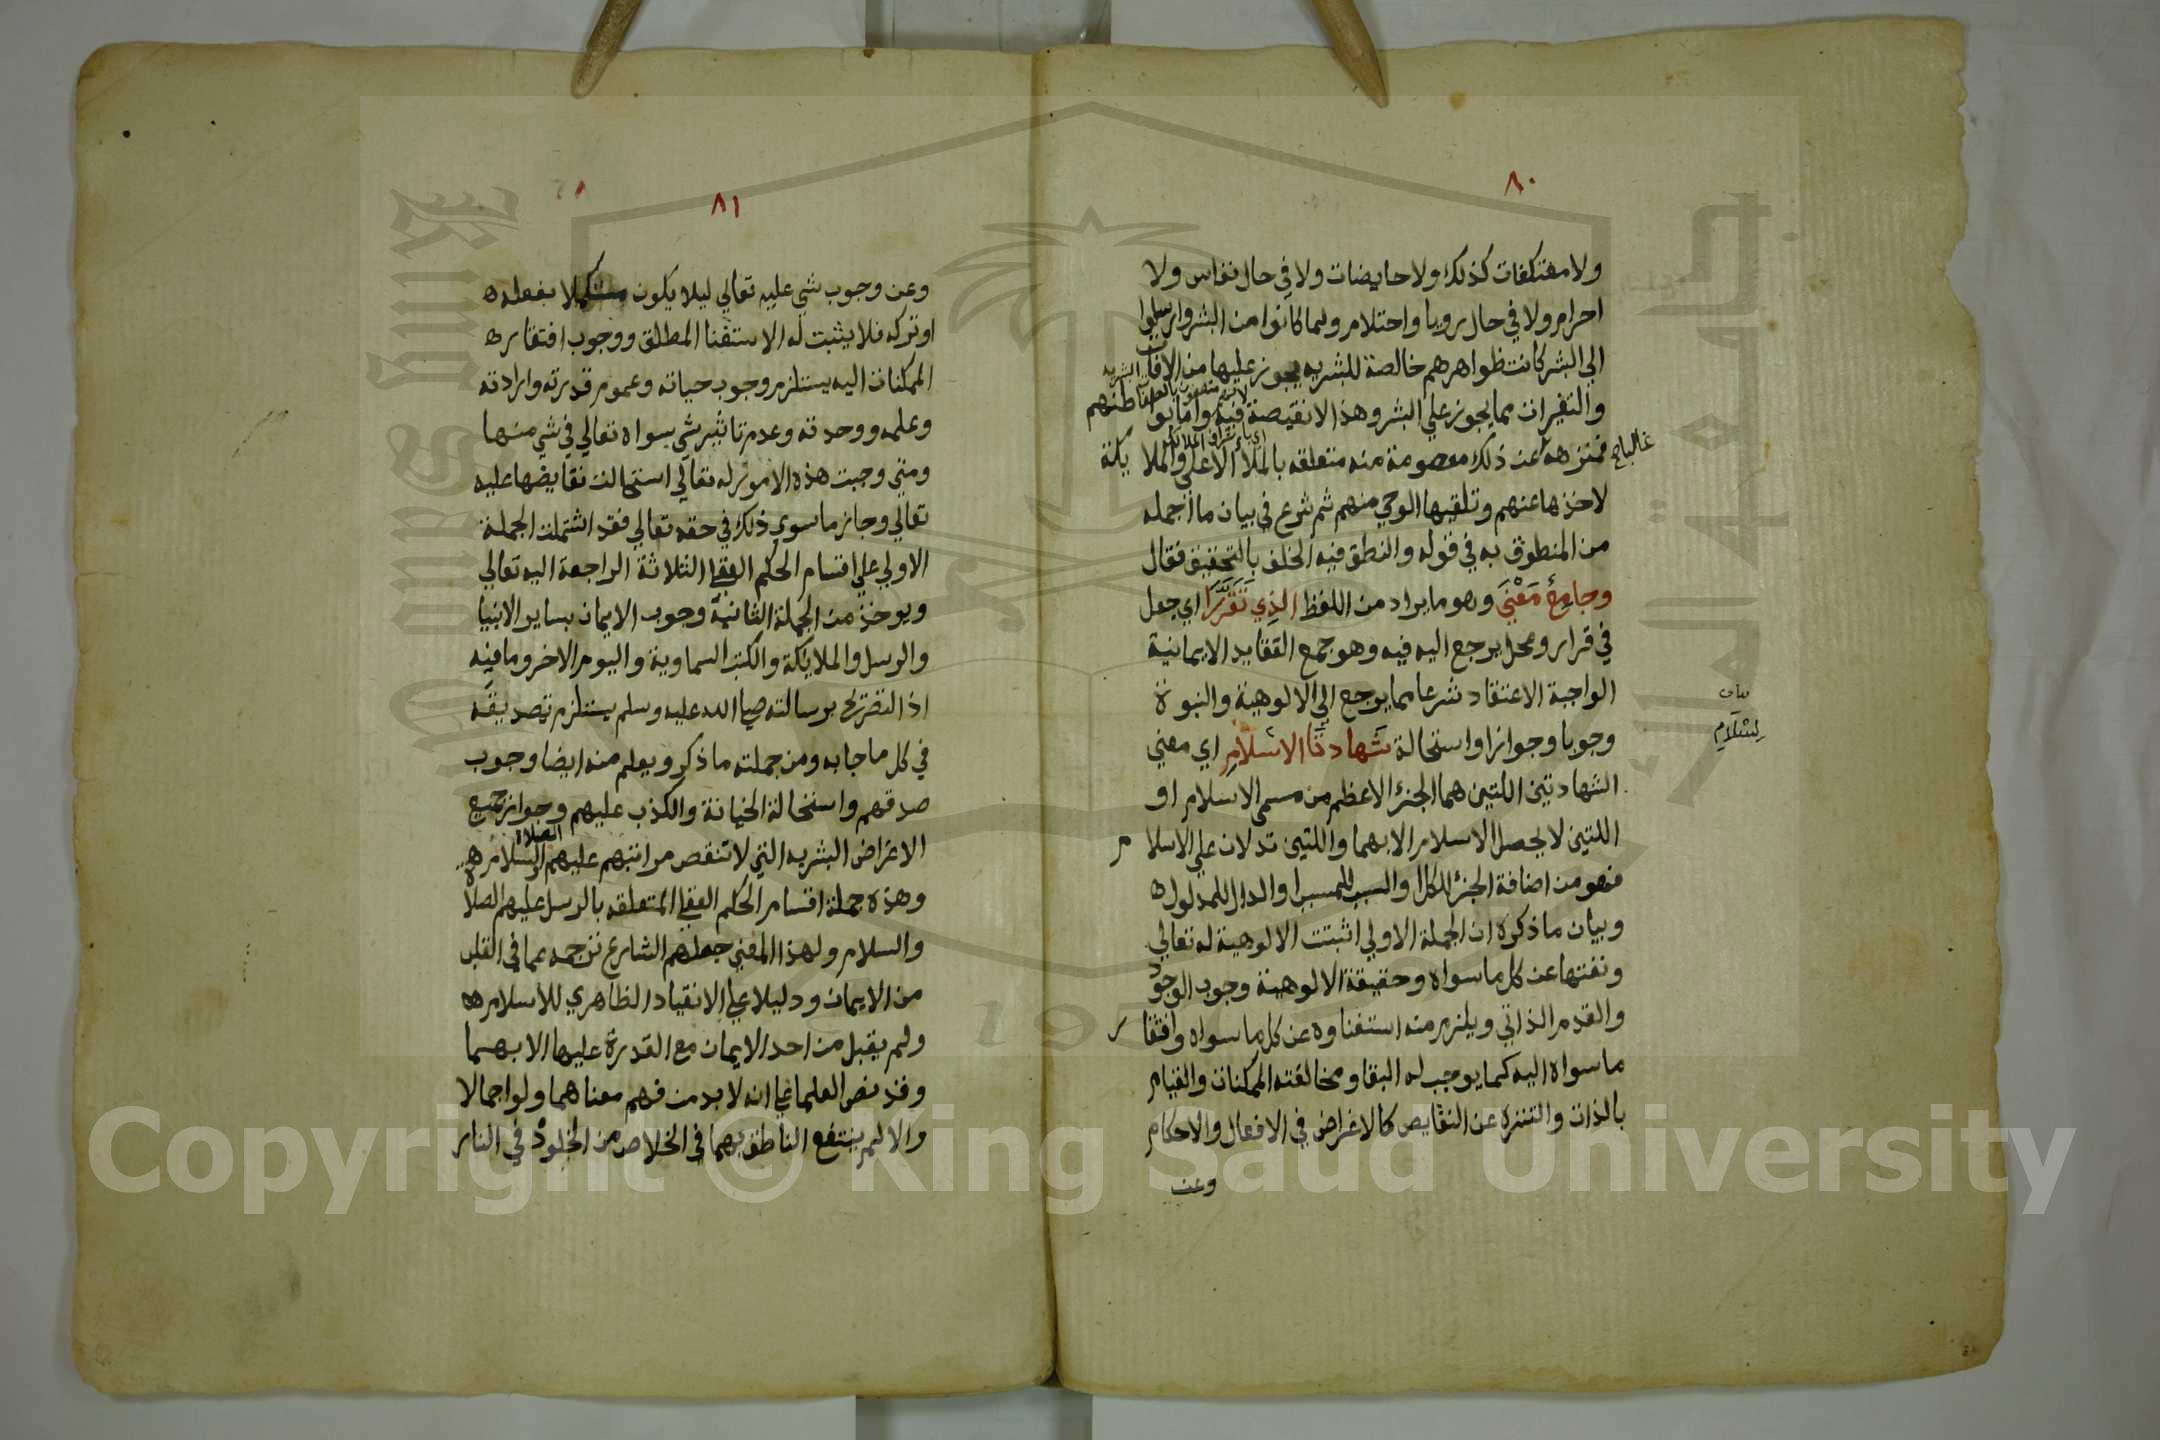 ٨٠
ولا معتكفات كذلك ولا حايضات ولا في حال نفاس ولا
احرام ولا في حال رويا واحتلام ولما كانوا من البشر وارسلوا
الي البشر كانت ظواهرهم خالصة للبشريه يجوز عليها من الافات
والتغيرات مما يجوز علي البشر وهذا لا نقيصة فيه واما بواطنهم
غالبا
فمنزهة عن ذلك معصومة منه متعلقه بالملأ الاعلي والملايكة
لاخذها عنهم وتلقيها الوحي منهم ثم شرع في بيان ما اجمله
من المنطوق به في قوله والنطق فيه الخلف بالتحقيق فقال
وجامع مَعْنَى وهو ما يراد من اللفظ الذِي تَقَرَّرَا اي جعل
في قرار ومحل يرجع اليه فيه وهو جمع العقايد الايمانية
الواجبة الاعتقاد شرعا مما يرجع الي الالوهية والنبوة
وجوبا وجوازا واستحالة شَهادتَا الاسْلَامِ اي معني
الشهادتين اللتين هما الجزء الاعظم من مسمى الاسلام او
اللتين لا يحصل الاسلام الا بهما واللتين تدلان علي الاسلام
فهو من اضافة الجزء للكل او السبب للمسبب او الدال للمدلول
وبيان ما ذكره ان الجملة الاولي اثبتت الالوهية له تعالي
ونفتها عن كل ما سواه وحقيقة الالوهية وجوب الوجود
والقدم الذاتي ويلزم منه استغناوه عن كل ما سواه وافتقار
ما سواه اليه كما يوجب له البقا ومخالفته الممكنات والقيام
بالذات والتنزه عن النقايص كالاغراض في الافعال والاحكام
وعن
٨١
وعن وجوب شي عليه تعالي ليلا يكون مستكملا بفعله
او تركه فلا يثبت له الاستغنا المطلق ووجوب افتقار
الممكنات اليه يستلزم وجوب حياته وعموم قدرته وارادته
وعلمه ووحدته وعدم تاثير شي سواه تعالي في شي منها
ومتي وجبت هذه الامور له تعالي استحالت نقايضها عليه
تعالي وجاز ما سوي ذلك في حقه تعالي فقد اشتملت الجملة
الاولي علي اقسام الحكم العقلي الثلاثة الراجعة اليه تعالي
ويوخذ من الجملة الثانية وجوب الايمان بساير الانبيا
والرسل والملايكة والكتب السماوية واليوم الاخر وما فيه
اذ التصريح برسالته صلي الله عليه وسلم يستلزم تصديقه
في كل ما جا به ومن جملته ما ذكر ويعلم منه ايضا وجوب
صدقهم واستحالة الخيانة والكذب عليهم وجواز جميع
الاعراض البشريه التي لا تنقص مراتبهم عليهم الصلاة والسلام
وهذه جملة اقسام الحكم العقلي المتعلقه بالرسل عليهم الصلاة
والسلام ولهذا المعني جعلهم الشارع ترجمه عما في القلب
من الايمان ودليلا علي الانقياد الظاهري للاسلام
ولم يقبل من احد الايمان مع القدرة عليها الا بهما
وقد نص العلما علي انه لا بد من فهم معناهما ولو اجمالا
والا لم ينتفع الناطق بهما في الخلاص من الخلود في النار
Copyright © King Saud University